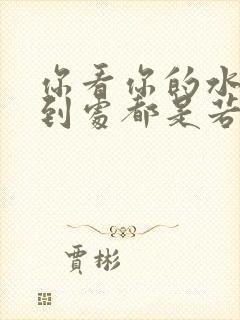 你看你的水
到處都是若
賈彬